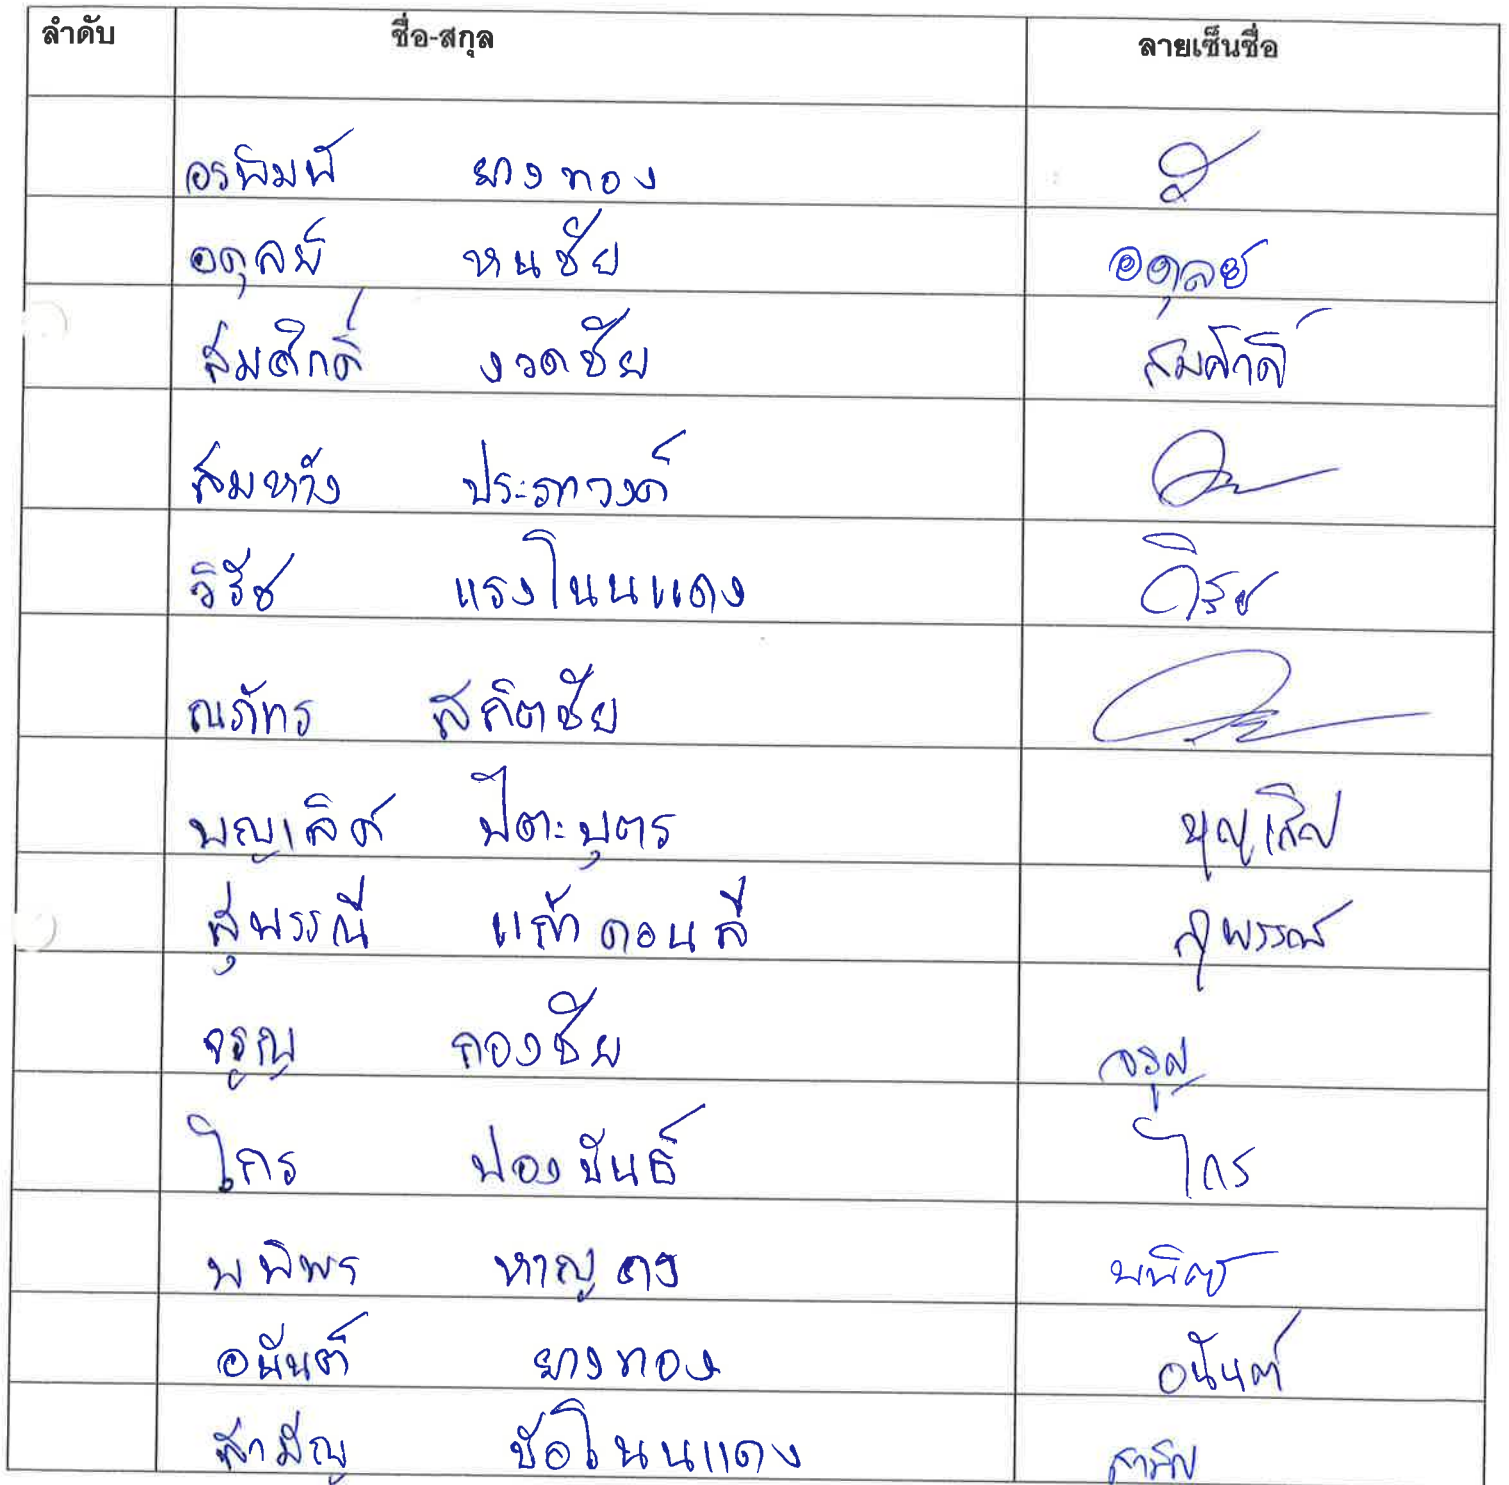 ลำดับ ชื่อ-สกุล ลายเซ็นชื่อ
อรพิมพ์ ยางทอง
อดุลย์ หนชัย อดุลย์
สมศักดิ์ งวดชัย สมศักดิ์
สมหวัง ประภาวงค์
วิรัช แรงโนนแดง วิรัช
ณภัทร สถิตชัย
บุญเลิศ ปัตะบุตร บุญเลิศ
สุพรรณี แก้วดอนลี สุพรรณี
จรูญ กองชัย จรูญ
ไกร ปองขันธ์ ไกร
พพิพร หาญ
อนันต์ ยางทอง อนันต์
สามัญ ช้อโนนแดง สามัญ